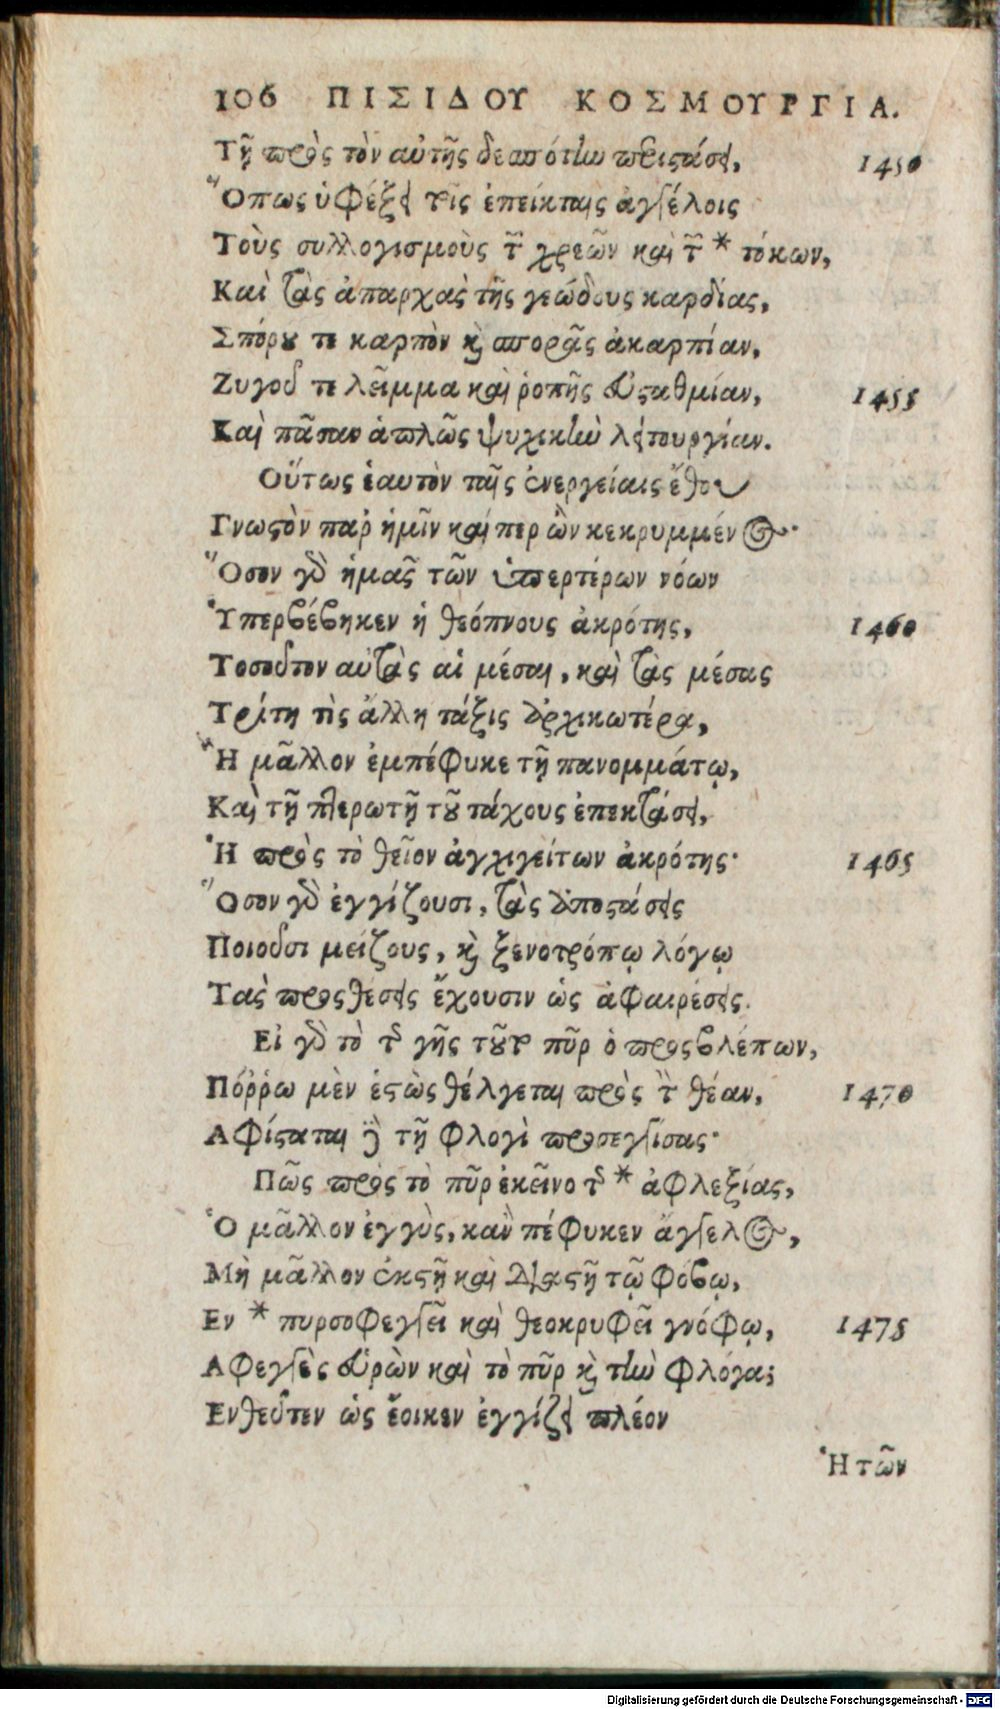 106 ΠΙΣΙΔΟΥ ΚΟΣΜΟΥΡΓΙΑ.
Τῇ πρὸς τὸν αὐτῆς δεσπότην περιστάσει, 1450
Ὅπως ὑφέξει τοῖς ἐπείκταις ἀγγέλοις
Τοὺς συλλογισμοὺς τῶν χρεῶν καὶ τῶν * τόκων,
Καὶ τὰς ἀπαρχὰς τῆς γεώδους καρδίας,
Σπόρου τε καρπὸν καὶ σπορᾶς ἀκαρπίαν,
Ζυγοῦ τε λεῖμμα καὶ ῥοπῆς εὐσταθμίαν, 1455
Καὶ πᾶσαν ἁπλῶς ψυχικὴν λειτουργίαν.
Οὕτως ἑαυτὸν ταῖς ἐνεργείαις ἔθου
Γνωστὸν παρ ἡμῖν καί περ ὢν κεκρυμμένος·
Ὅσον γὰρ ἡμᾶς τῶν ὑπερτέρων νόων
Ὑπερβέβηκεν ἡ θεόπνους ἀκρότης, 1460
Τοσοῦτον αὐτὰς αἱ μέσαι, καὶ τὰς μέσας
Τρίτη τὶς ἄλλη τάξις ἀρχικωτέρα,
Ἢ μᾶλλον ἐμπέφυκε τῇ πανομμάτῳ,
Καὶ τῇ πτερωτῇ τοῦ τάχους ἐπεκτάσει,
Ἡ πρὸς τὸ θεῖον ἀγχιγείτων ἀκρότης· 1465
Ὅσον γὰρ ἐγγίζουσι, τὰς ἀποστάσεις
Ποιοῦσι μείζους, καὶ ξενοτρόπῳ λόγῳ
Τὰς προσθέσεις ἔχουσιν ὡς ἀφαιρέσεις.
Εἰ γὰρ τὸ τῆς γῆς τοῦτο πῦρ ὁ προσβλέπων,
Πόῤῥω μὲν ἑστὼς θέλγεται πρὸς τὴν θέαν, 1470
Αφίσταται δὲ τῇ φλογὶ προσεγγίσας·
Πῶς πρὸς τὸ πῦρ ἐκεῖνο τῆς * ἀφλεξίας,
Ὁ μᾶλλον ἐγγὺς, κἂν πέφυκεν ἄγγελος,
Μὴ μᾶλλον ἐκστῇ καὶ διαστῇ τῷ φόβῳ,
Εν * πυρσοφεγγεῖ καὶ θεοκρυφεῖ γνόφῳ, 1475
Αφεγγὲς εὑρὼν καὶ τὸ πῦρ καὶ τὴν φλόγα;
Ενθεῦτεν ὡς ἔοικεν ἐγγίζει πλέον
Ἢ τῶν
Digitalisierung gefördert durch die Deutsche Forschungsgemeinschaft - DFG